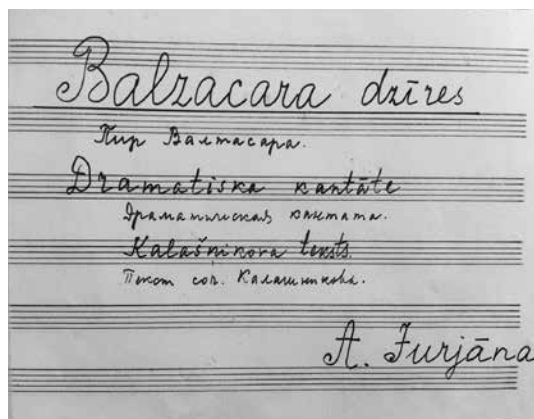 Balzacara dzīres
Пир Валтасара.
Dramatiska kantāte
Драматическая кантата.
Kalašnikova teksts.
Текст соч. Калашникова.
A. Jurjāna